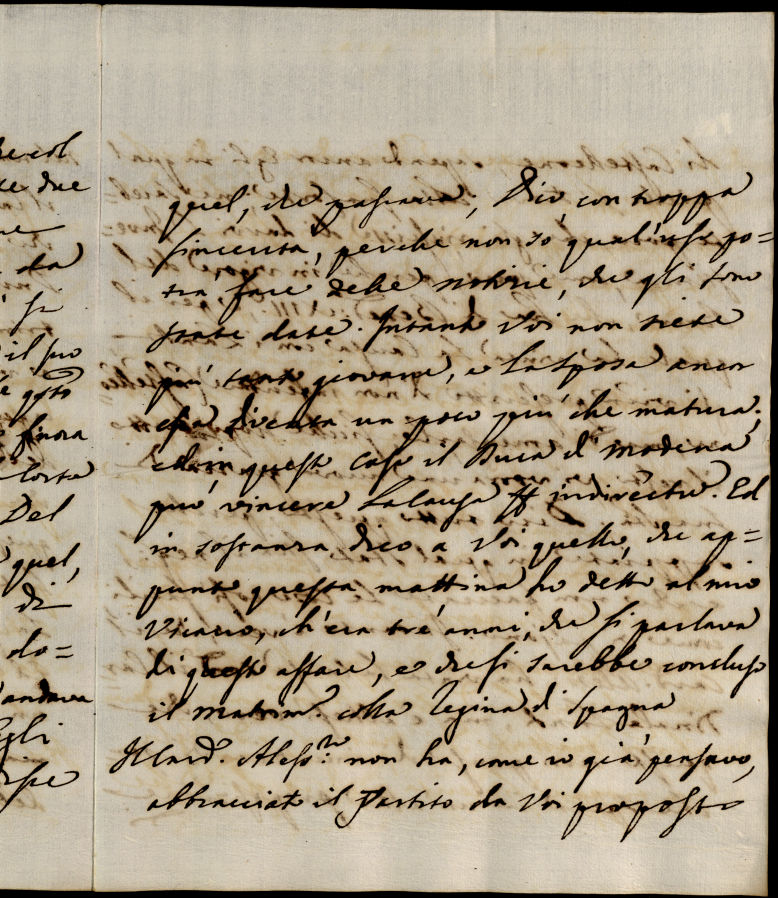 he col
te due
ne
da
si
il suo
finora
Corte
Del
quel,
di
do=
andava
Egli
quel, che passava; Dico, con troppa
sincerità, perche non so qual'uso po=
trà fare delle notizie, che gli sono
state date. Intanto Voi non siete
più tanto giovane, e La Sposa ancor
essa diventa un poco più che matura;
ed in questo caso il Duca di Modena
può vincere La causa indirecte. Ed
in sostanza dico a Voi quello, che ap=
punto questa mattina ho detto al mio
Vicario, ch'era trè anni, che si parlava
di questo affare, e che si sarebbe concluso
il matrim.º colla Regina di Spagna
Il Card. Aless.º non ha, come io già pensavo,
abbracciato il Partito da Voi proposto